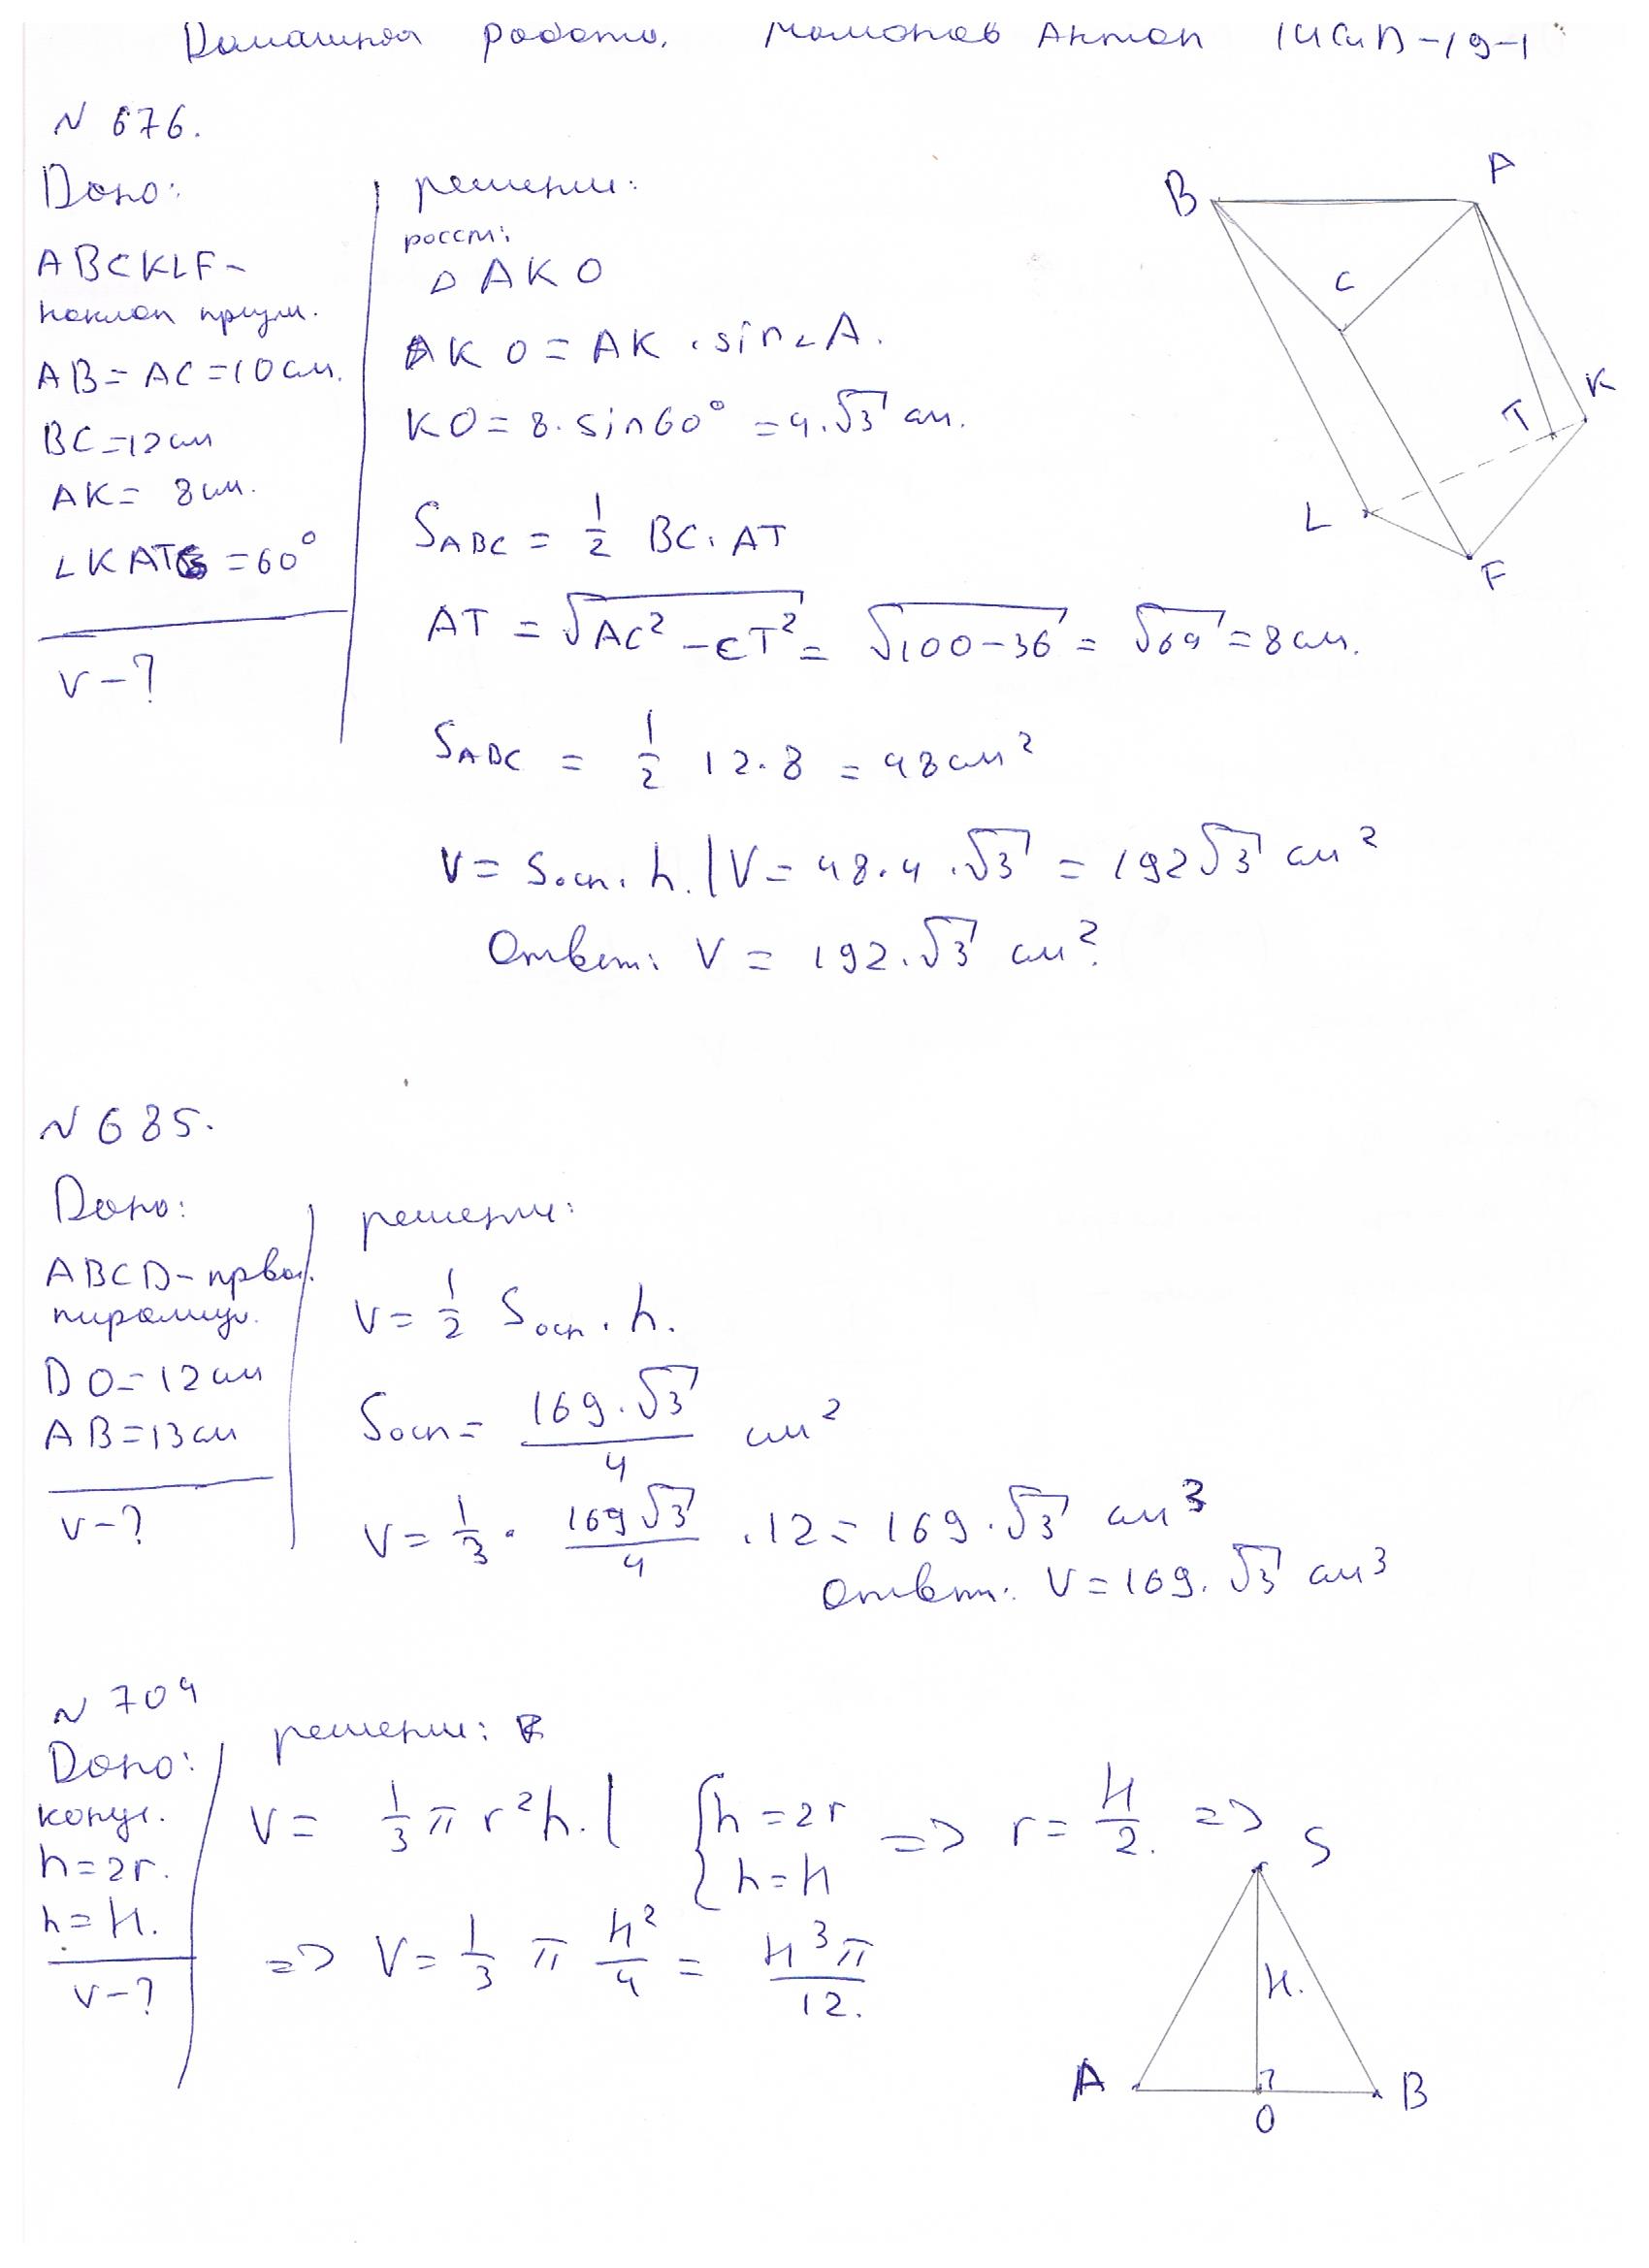 Домашняя работа. Мамонтов Антон 1ИСиП-19-1
N 676.
Дано:
ABCKLF-
наклон призм.
AB = AC = 10 см.
BC = 12 см
AK = 8 см.
∠KAT = 60°
V-?
решени:
рассм:
△ AKO
AKO = AK · sin∠A.
KO = 8 · sin60° = 4·√3 см.
S ABC = 1/2 BC · AT
AT = √(AC² - CT²) = √(100-36) = √64 = 8 см.
S ABC = 1/2 12·8 = 48 см²
V = Sосн · h. | V = 48·4·√3 = 192√3 см²
Ответ: V = 192·√3 см²
B A
C
K
T
L
F
N 685.
Дано:
ABCD-прввл.
пирамид.
DO = 12 см
AB = 13 см
V-?
решени:
V = 1/2 Sосн · h.
Sосн = 169·√3/4 см²
V = 1/3 · 169√3/4 · 12 = 169·√3 см³
Ответ: V = 169·√3 см³
N 704
Дано:
конус.
h = 2r.
h = H.
V-?
решени:
V = 1/3 π r²h. | { h = 2r h = H => r = H/2. =>
=> V = 1/3 π H²/4 = H³π/12.
S
H.
A O B